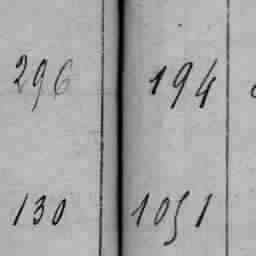 296 194
130 1051